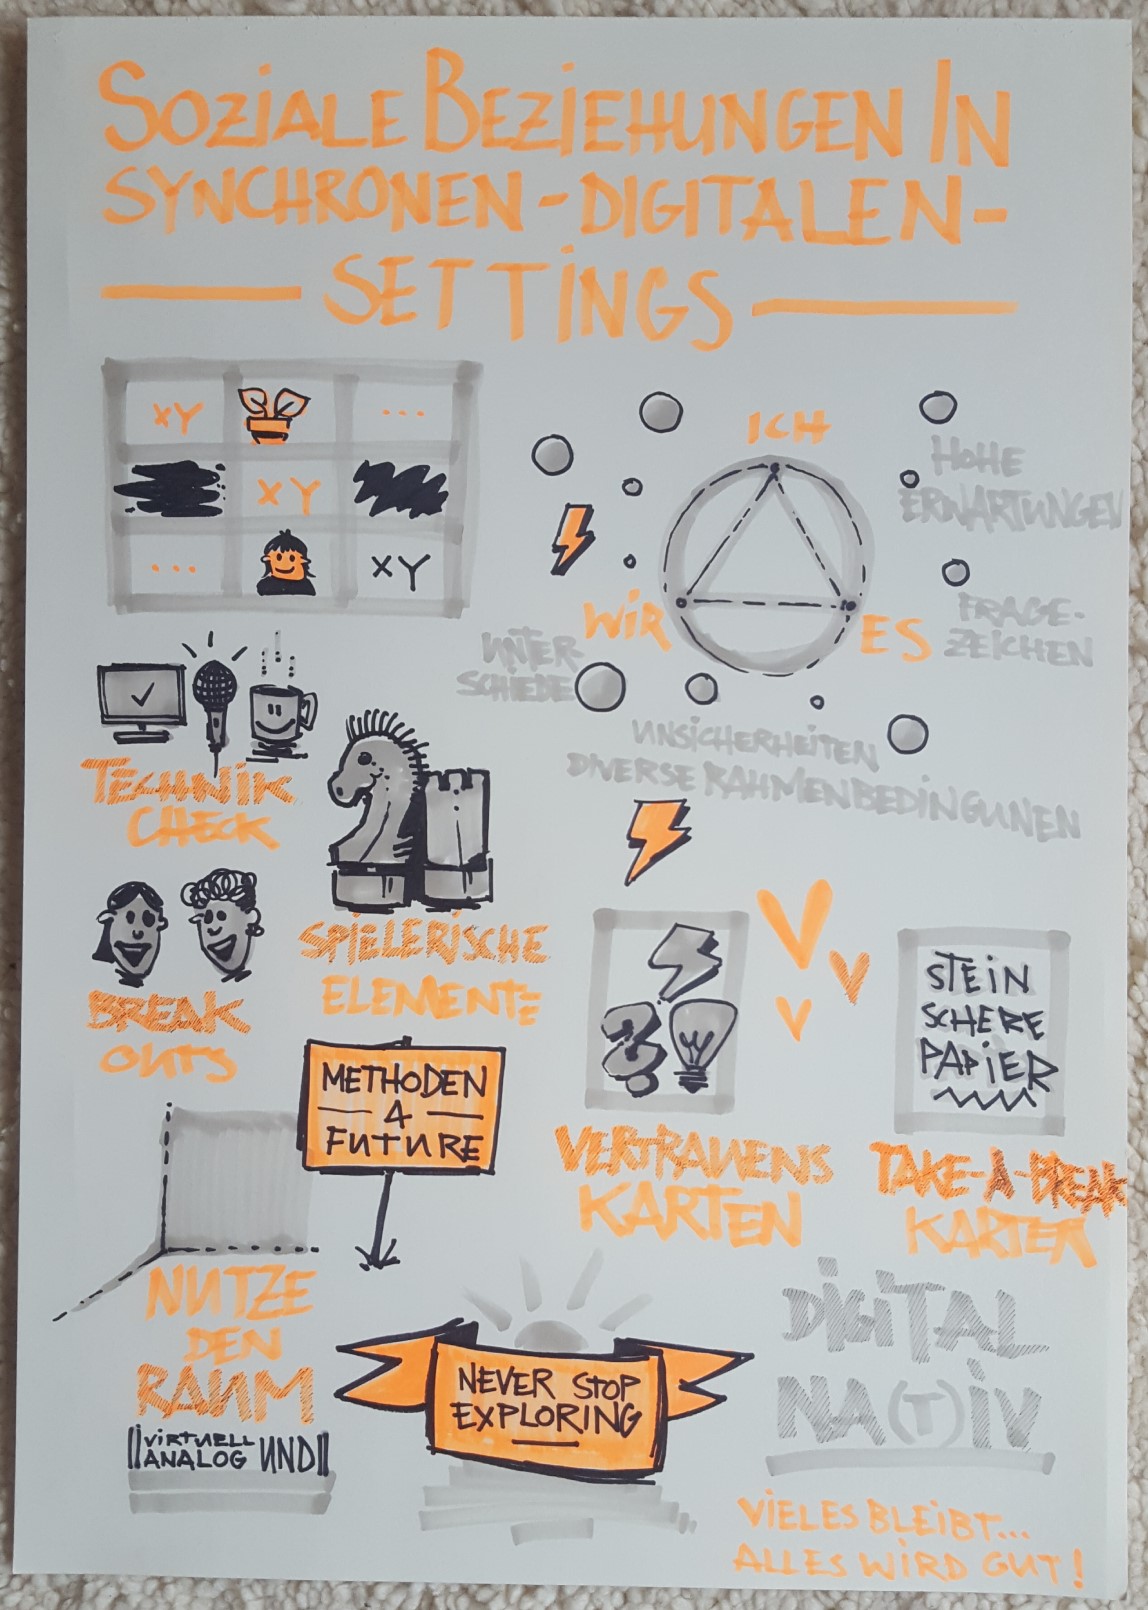 SOZIALE BEZIEHUNGEN IN
SYNCHRONEN-DIGITALEN-
SETTINGS
XY
...
XY
...
XY
ICH
WIR
ES
HOHE
ERWARTUNGEN
FRAGE-
ZEICHEN
UNTER-
SCHIEDE
UNSICHERHEITEN
DIVERSE RAHMENBEDINGUNEN
TECHNIK
CHECK
SPIELERISCHE
ELEMENTE
BREAK
OUTS
METHODEN
4
FUTURE
VERTRAUENS
KARTEN
STEIN
SCHERE
PAPIER
TAKE-A-BREAK
KARTEN
NUTZE
DEN
RAUM
VIRTUELL
ANALOG UND
NEVER STOP
EXPLORING
DIGITAL
NA(T)IV
VIELES BLEIBT...
ALLES WIRD GUT!